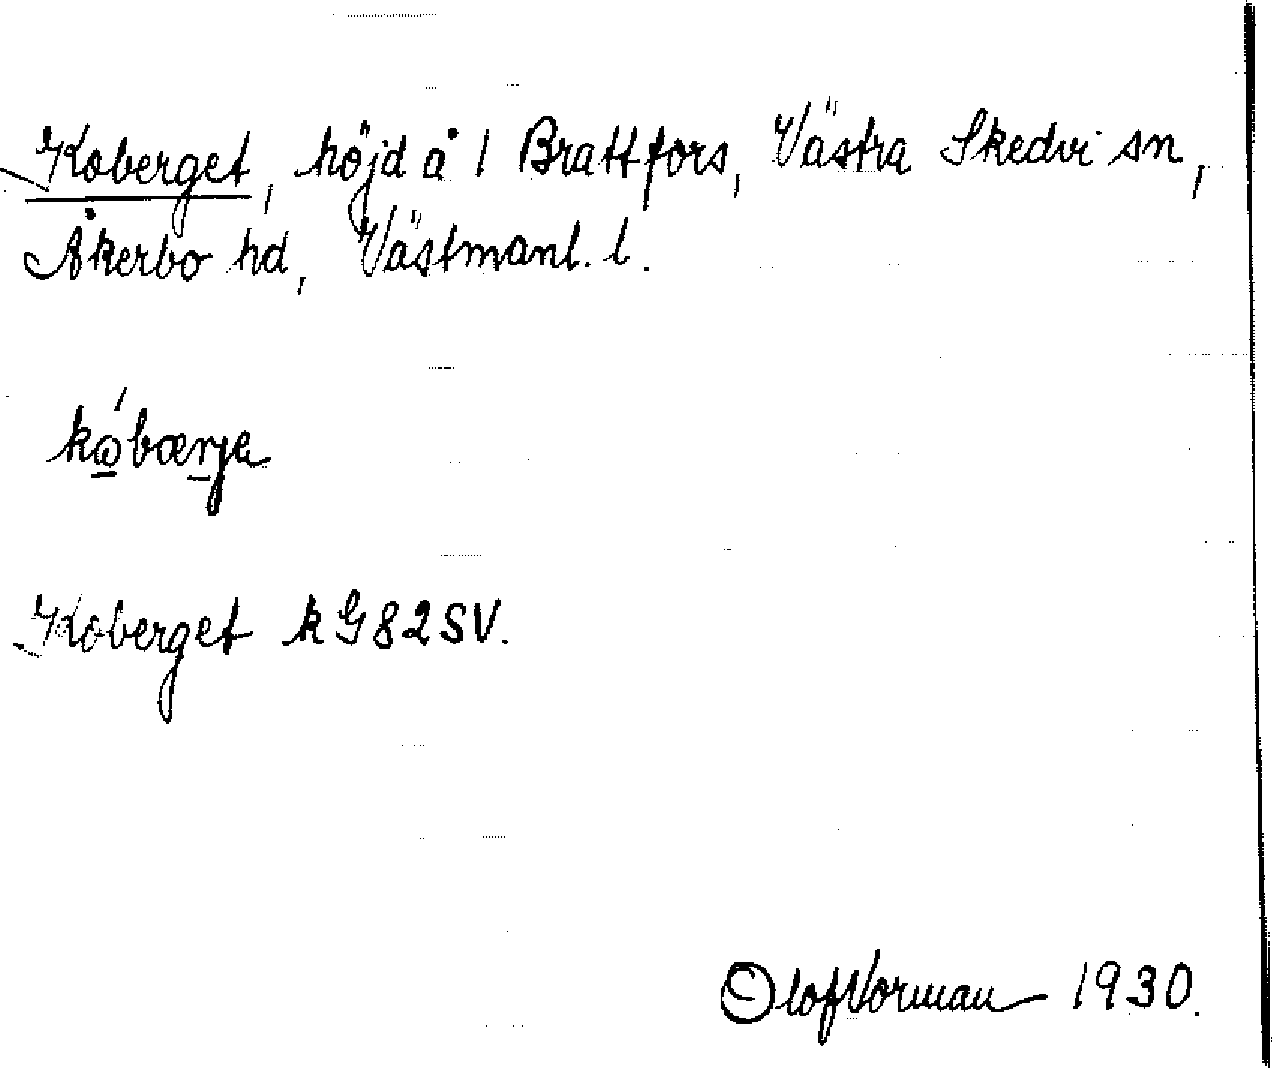 Koberget, höjd å 1 Brattfors, Västra Skedvi sn,
Åkerbo hd, Västmanl. l.
kóbærja
Koberget kG82SV.
Olof Vorman 1930.